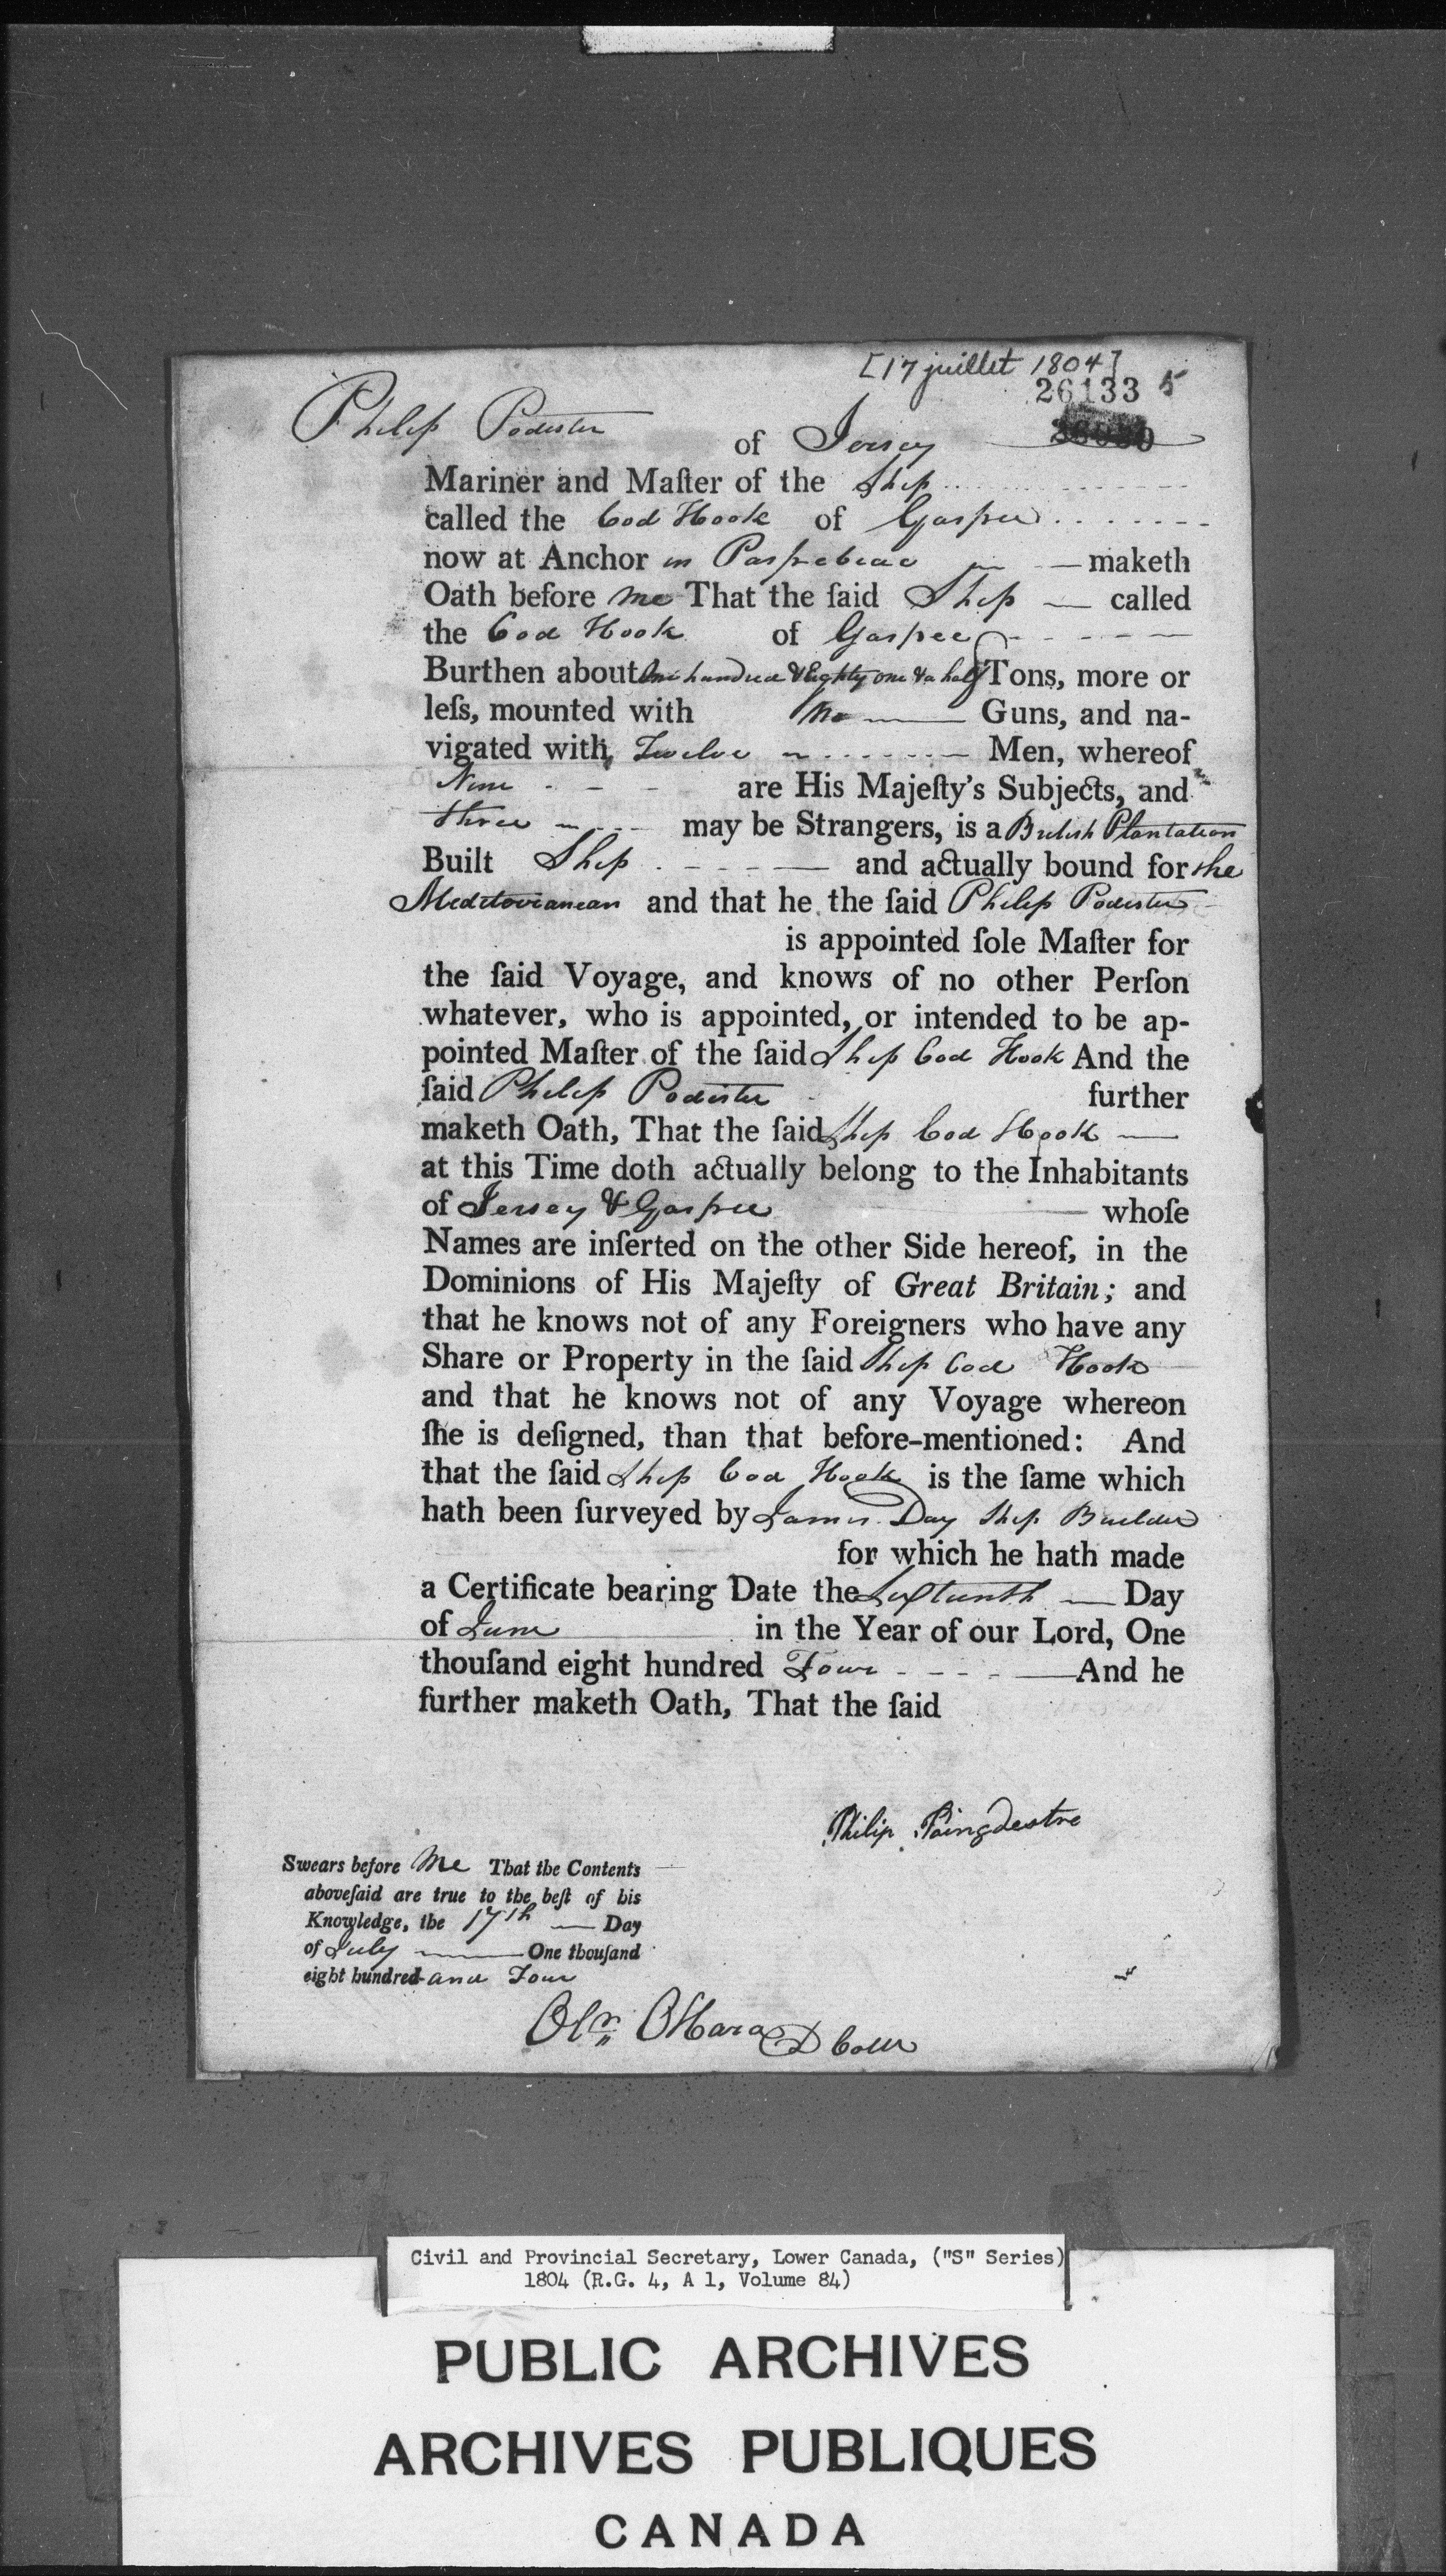 [17 juillet 1804]
26133 5
Philip Podester of Jersey
Mariner and Maſter of the Ship
called the Cod Hook of Gaspee
now at Anchor in Paspebiac — maketh
Oath before me That the ſaid Ship — called
the Cod Hook of Gaspee
Burthen about One hundred & Eighty one & a half Tons, more or
leſs, mounted with No — Guns, and na-
vigated with Twelve — Men, whereof
Nine - - - are His Majeſty's Subjects, and
three — may be Strangers, is a British Plantation
Built Ship - - - — and actually bound for the
Mediterranean and that he the ſaid Philip Podester
is appointed ſole Maſter for
the ſaid Voyage, and knows of no other Perſon
whatever, who is appointed, or intended to be ap-
pointed Maſter of the ſaid Ship Cod Hook And the
ſaid Philip Podester further
maketh Oath, That the ſaid Ship Cod Hook —
at this Time doth actually belong to the Inhabitants
of Jersey & Gaspee — whoſe
Names are inſerted on the other Side hereof, in the
Dominions of His Majeſty of Great Britain; and
that he knows not of any Foreigners who have any
Share or Property in the ſaid Ship Cod Hook
and that he knows not of any Voyage whereon
ſhe is deſigned, than that before-mentioned: And
that the ſaid Ship Cod Hook is the ſame which
hath been ſurveyed by James Day Ship Builder
for which he hath made
a Certificate bearing Date the Sixteenth — Day
of June in the Year of our Lord, One
thouſand eight hundred Four - - - — And he
further maketh Oath, That the ſaid
Philip Poingdestre
Swears before Me That the Contents
aboveſaid are true to the beſt of his
Knowledge, the 17th — Day
of July — One thouſand
eight hundred and Four
Olr. OHara D Collr
Civil and Provincial Secretary, Lower Canada, ("S" Series)
1804 (R.G. 4, A 1, Volume 84)
PUBLIC ARCHIVES
ARCHIVES PUBLIQUES
CANADA